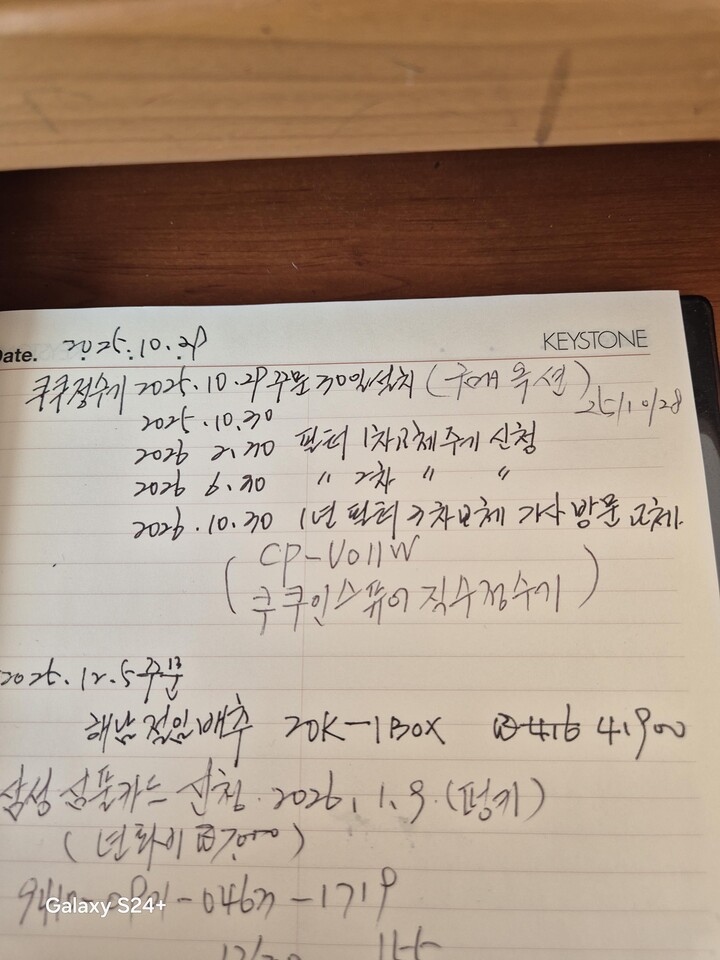 Date. 2025.10.29 KEYSTONE
쿠쿠정수기 2025.10.29 주문 30일설치 (구매 옥션)
25/10/28
2025.10.30
2026 2.30 필터 1차교체주기 신청
2026 6.30 " 2차 " "
2026.10.30 1년 필터 3차교체 기사 방문 교체.
( CP-V011W
쿠쿠인스퓨어 직수정수기 )
2025.12.5 주문
해남 절임배추 20K-1BOX 41900
삼성 카드 신청. 2026.1.9. (펑키)
(년회비 7,000)
-1719
Galaxy S24+